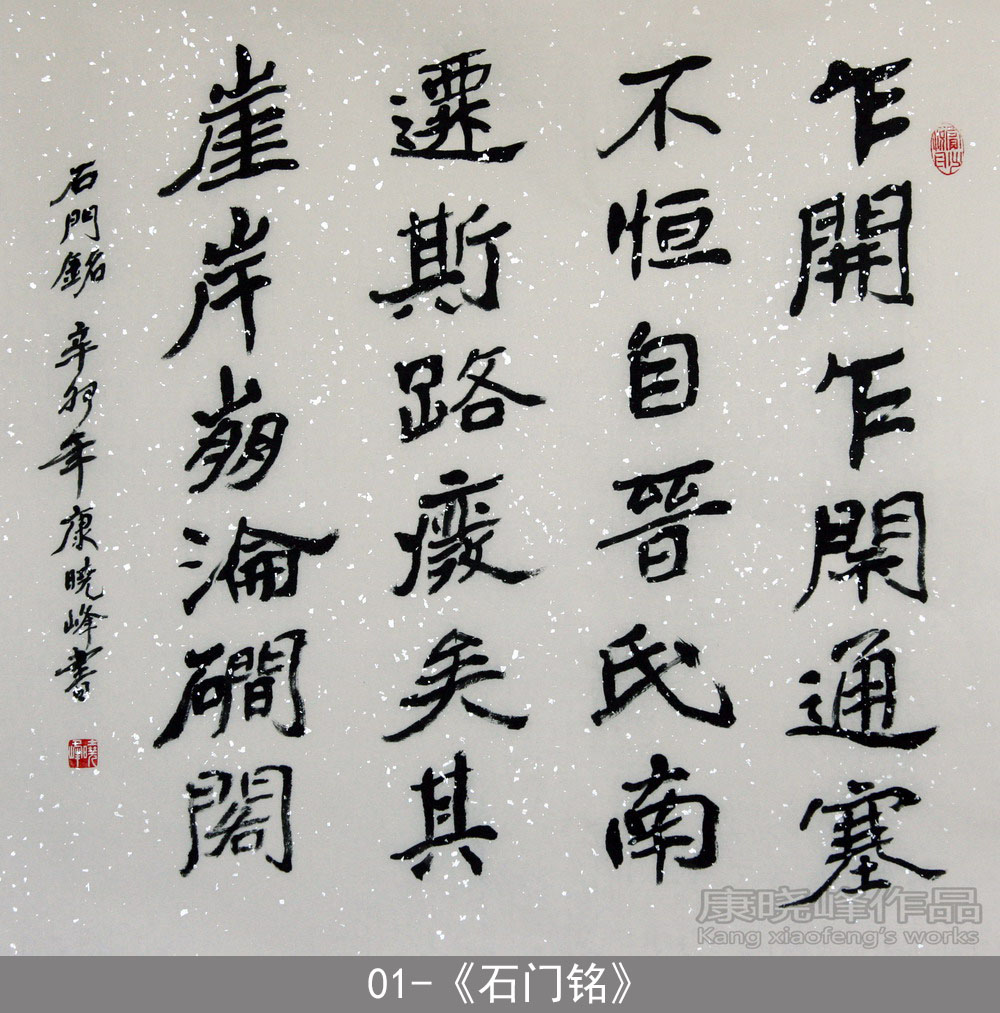 乍開乍閇通塞
不恒自晉氏南
遷斯路廢矣其
崖岸崩淪磵閣
石門銘 辛卯年 康曉峰書
曉峰
康晓峰作品
Kang xiaofeng's works
01-《石门铭》